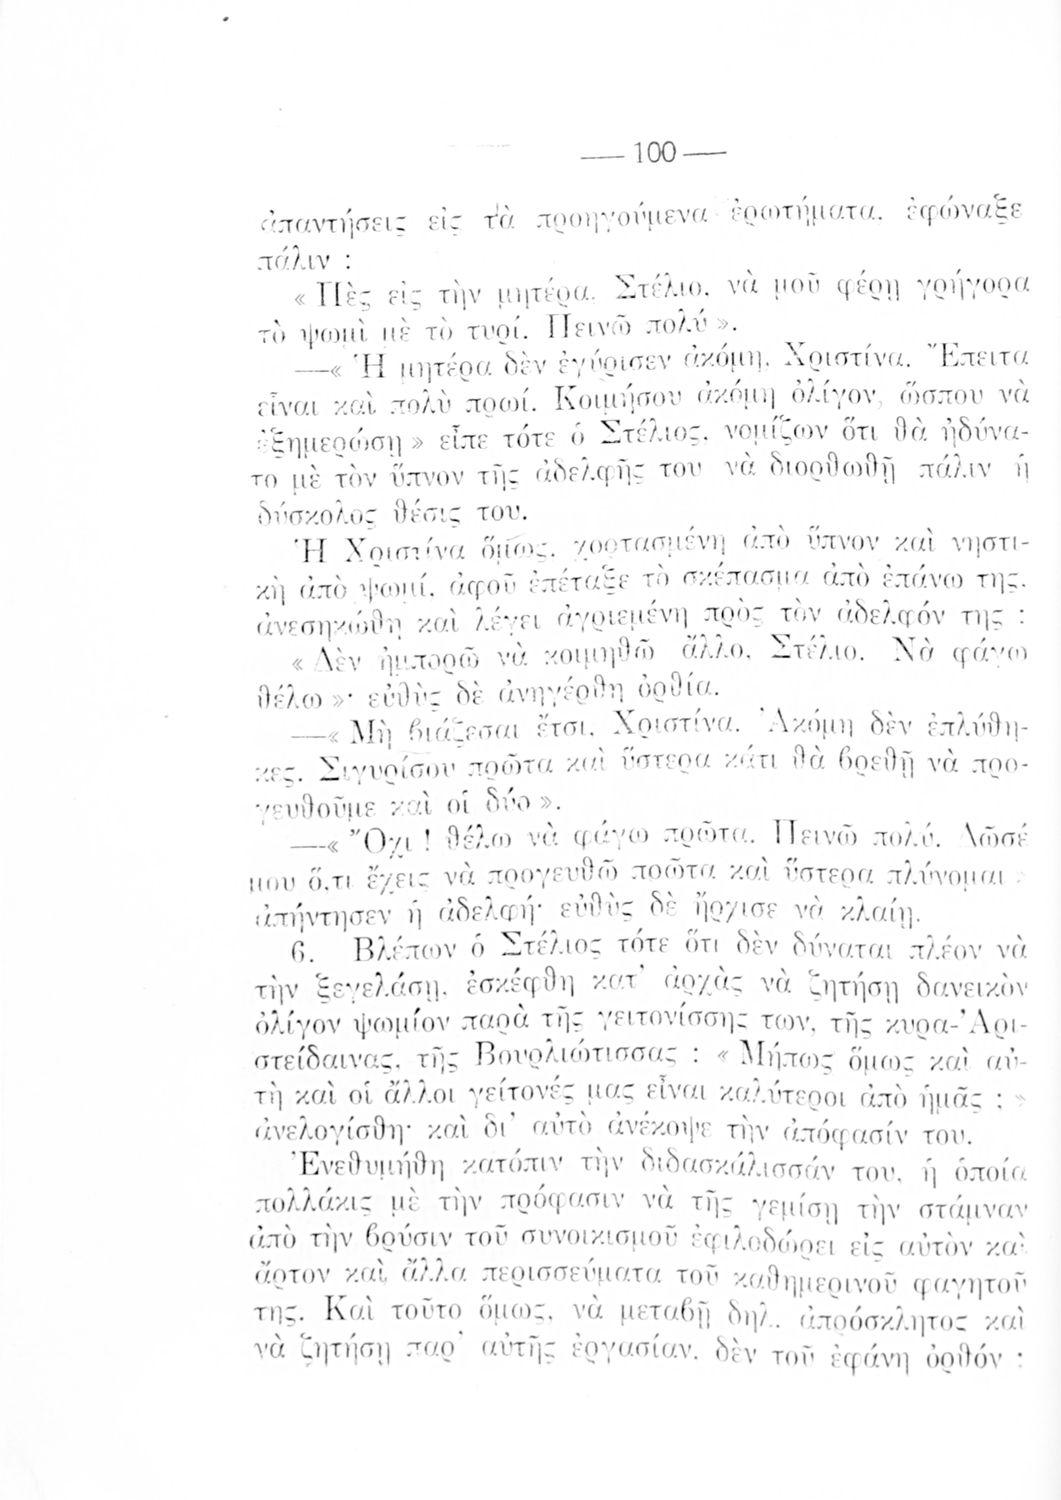 — 100 —
ἀπαντήσεις εἰς τὰ προηγούμενα ἐρωτήματα, ἐφώναξε
πάλιν :
« Πὲς εἰς τὴν μητέρα, Στέλιο, νὰ μοῦ φέρῃ γρήγορα
τὸ ψωμὶ μὲ τὸ τυρί. Πεινῶ πολύ ».
—« Ἡ μητέρα δὲν ἐγύρισεν ἀκόμη, Χριστίνα. Ἔπειτα
εἶναι καὶ πολὺ πρωί. Κοιμήσου ἀκόμη ὀλίγον, ὥσπου νὰ
ἐξημερώσῃ » εἶπε τότε ὁ Στέλιος, νομίζων ὅτι θὰ ἠδύνα-
το μὲ τὸν ὕπνον τῆς ἀδελφῆς του νὰ διορθωθῇ πάλιν ἡ
δύσκολος θέσις του.
Ἡ Χριστίνα ὅμως, χορτασμένη ἀπὸ ὕπνον καὶ νηστι-
κὴ ἀπὸ ψωμί, ἀφοῦ ἐπέταξε τὸ σκέπασμα ἀπὸ ἐπάνω της,
ἀνεσηκώθη καὶ λέγει ἀγριεμένη πρὸς τὸν ἀδελφόν της :
« Δὲν ἠμπορῶ νὰ κοιμηθῶ ἄλλο, Στέλιο. Νὰ φάγω
θέλω »· εὐθὺς δὲ ἀνηγέρθη ὀρθία.
—« Μὴ βιάζεσαι ἔτσι, Χριστίνα. Ἀκόμη δὲν ἐπλύθη-
κες. Σιγυρίσου πρῶτα καὶ ὕστερα κάτι θὰ βρεθῇ νὰ προ-
γευθοῦμε καὶ οἱ δύο ».
—« Ὄχι ! θέλω νὰ φάγω πρῶτα. Πεινῶ πολύ. Δῶσέ
μου ὅ,τι ἔχεις νὰ προγευθῶ πρῶτα καὶ ὕστερα πλύνομαι »
ἀπήντησεν ἡ ἀδελφή· εὐθὺς δὲ ἤρχισε νὰ κλαίῃ.
6. Βλέπων ὁ Στέλιος τότε ὅτι δὲν δύναται πλέον νὰ
τὴν ξεγελάσῃ, ἐσκέφθη κατ' ἀρχὰς νὰ ζητήσῃ δανεικὸν
ὀλίγον ψωμίον παρὰ τῆς γειτονίσσης των, τῆς κυρα-Ἀρι-
στείδαινας, τῆς Βουρλιώτισσας : « Μήπως ὅμως καὶ αὐ-
τὴ καὶ οἱ ἄλλοι γείτονές μας εἶναι καλύτεροι ἀπὸ ἡμᾶς ; »
ἀνελογίσθη· καὶ δι' αὐτὸ ἀνέκοψε τὴν ἀπόφασίν του.
Ἐνεθυμήθη κατόπιν τὴν διδασκάλισσάν του, ἡ ὁποία
πολλάκις μὲ τὴν πρόφασιν νὰ τῆς γεμίσῃ τὴν στάμναν
ἀπὸ τὴν βρύσιν τοῦ συνοικισμοῦ ἐφιλοδώρει εἰς αὐτὸν καὶ
ἄρτον καὶ ἄλλα περισσεύματα τοῦ καθημερινοῦ φαγητοῦ
της. Καὶ τοῦτο ὅμως, νὰ μεταβῇ δηλ. ἀπρόσκλητος καὶ
νὰ ζητήσῃ παρ' αὐτῆς ἐργασίαν, δὲν τοῦ ἐφάνη ὀρθόν :